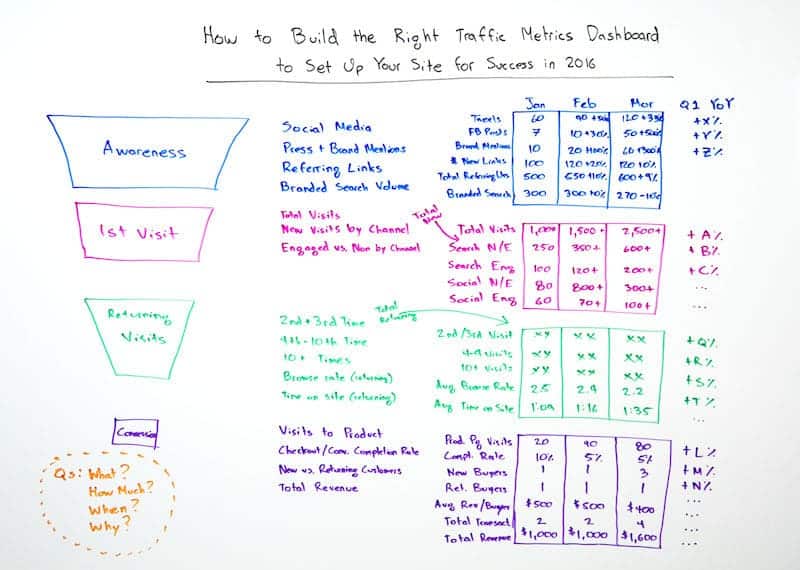 How to Build the Right Traffic Metrics Dashboard
to Set Up Your Site for Success in 2016
Jan Feb Mar Q1 YoY
Awareness
Social Media
Press + Brand Mentions
Referring Links
Branded Search Volume
Tweets 60 90 +50% 120 +33% +X%
FB Posts 7 10 +30% 50 +500% +Y%
Brand Mentions 10 20 +100% 60 +300% +Z%
# New Links 100 120 +20% 120 +0%
Total Referring 500 550 +10% 600 +9%
Branded Search 300 300 +0% 270 -10%
1st Visit
Total Visits
New Visits by Channel
Engaged vs. Non by Channel
Total New
Total Visits 1,000+ 1,500+ 2,500+ +A%
Search N/E 250 350+ 600+ +B%
Search Eng 100 120+ 200+ +C%
Social N/E 80 800+ 300+ ...
Social Eng 60 70+ 100+ ...
Returning
Visits
2nd + 3rd Time
4th - 10th Time
10+ Times
Browse rate (returning)
Time on site (returning)
Total Returning
2nd/3rd Visit xx xx xx +Q%
4-9 visits xx xx xx +R%
10+ visits xx xx xx +S%
Avg Browse Rate 2.5 2.4 2.2 +T%
Avg Time on Site 1:09 1:16 1:35 ...
Conversion
Visits to Product
Checkout/Conv. Completion Rate
New vs. Returning Customers
Total Revenue
Prod. Pg Visits 20 40 80 +L%
Compl. Rate 10% 5% 5% +M%
New Buyers 1 1 3 +N%
Ret. Buyers 1 1 1 ...
Avg Rev/Buyer $500 $500 $400 ...
Total Transact 2 2 4 ...
Total Revenue $1,000 $1,000 $1,600 ...
Qs: What?
How Much?
When?
Why?